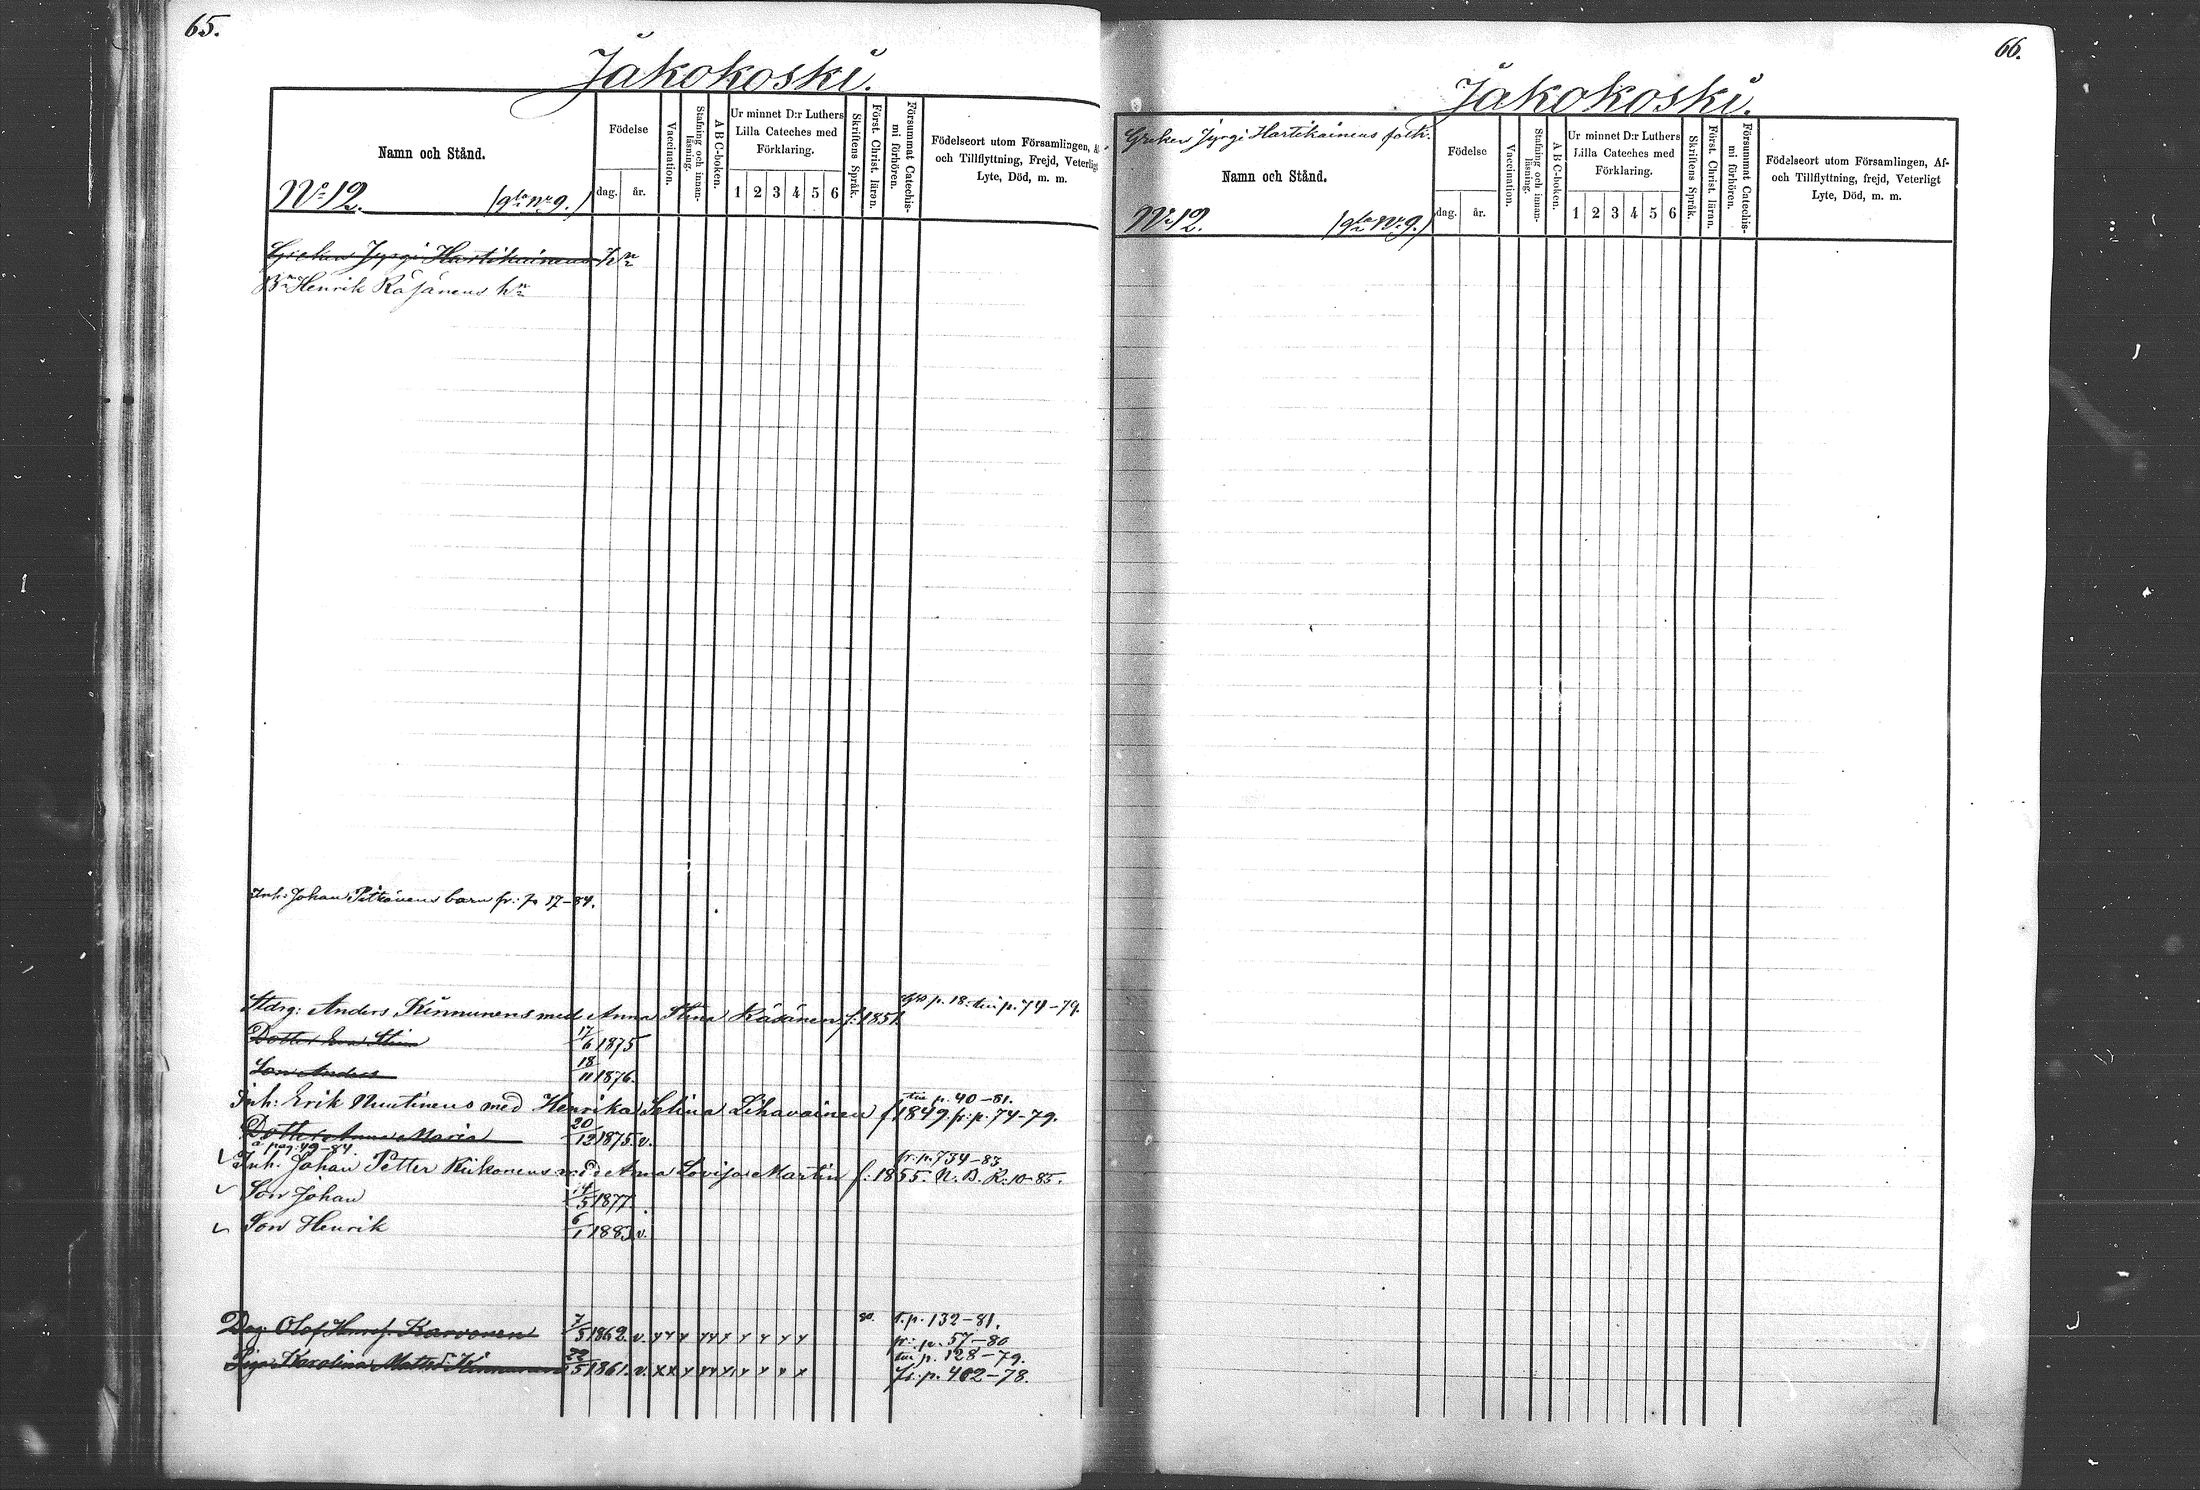 65.
Jakokoski.
Namn och Stånd.
Födelse
dag. år.
Vaccination.
Stafning och innanläsning.
A B C-boken.
Ur minnet D:r Luthers
Lilla Cateches med
Förklaring.
1 2 3 4 5 6
Skriftens Språk.
Först. Christ. läran.
Försummat Catechismi förhören.
Födelseort utom Församlingen,
och Tillflyttning, Frejd, Veterligt
Lyte, Död, m. m.
No 12. (gla No 9.)
Greken Jyrgi Hartikainens hn
Bn Henrik Räsänens hn
Inh: Johan Pitkänens barn fr: p 17-84.
p. 18. tin p. 74-79.
Stdrg: Anders Kinnunens med Anna Stina Räsänen f: 1851.
Dotter Eva Stina 17/6 1875
Son Anders 18/11 1876.
tin p. 40-81.
Inh: Erik Nuutinens med Henrika Selina Lihavainen f 1849. fr: p. 74-79.
Dotter Anna Maria 20/12 1875. v.
à pag: 49-84.
fr: p. 734-83
Inh. Johan Petter Kiikonens med Anna Lovisa Martin f: 1855. N. B. K. 10-85.
Son Johan 14/5 1877.
Son Henrik 6/1 1883 v.
Drg Olof Karvonen 7/5 1862. v. 80. t. p. 132-81.
fr: p. 57-80
tin p. 128-79.
Piga Karolina Matsd: Kinnunen 22/5 1861. v. fr: p. 402-78.
66.
Jakokoski.
Greken Jyrgi Hartikainens folk.
Namn och Stånd.
Födelse
dag. år.
Vaccination.
Stafning och innanläsning.
A B C-boken.
Ur minnet D:r Luthers
Lilla Cateches med
Förklaring.
1 2 3 4 5 6
Skriftens Språk.
Först. Christ. läran.
Försummat Catechismi förhören.
Födelseort utom Församlingen, Af-
och Tillflyttning, frejd, Veterligt
Lyte, Död, m. m.
No 12. (gla No 9.)